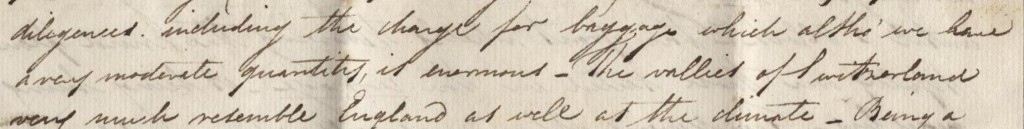 diligences. including the charge for baggage which altho' we have
a very moderate quantity, is enormous - The vallies of Switzerland
very much resemble England as well as the climate - Being a